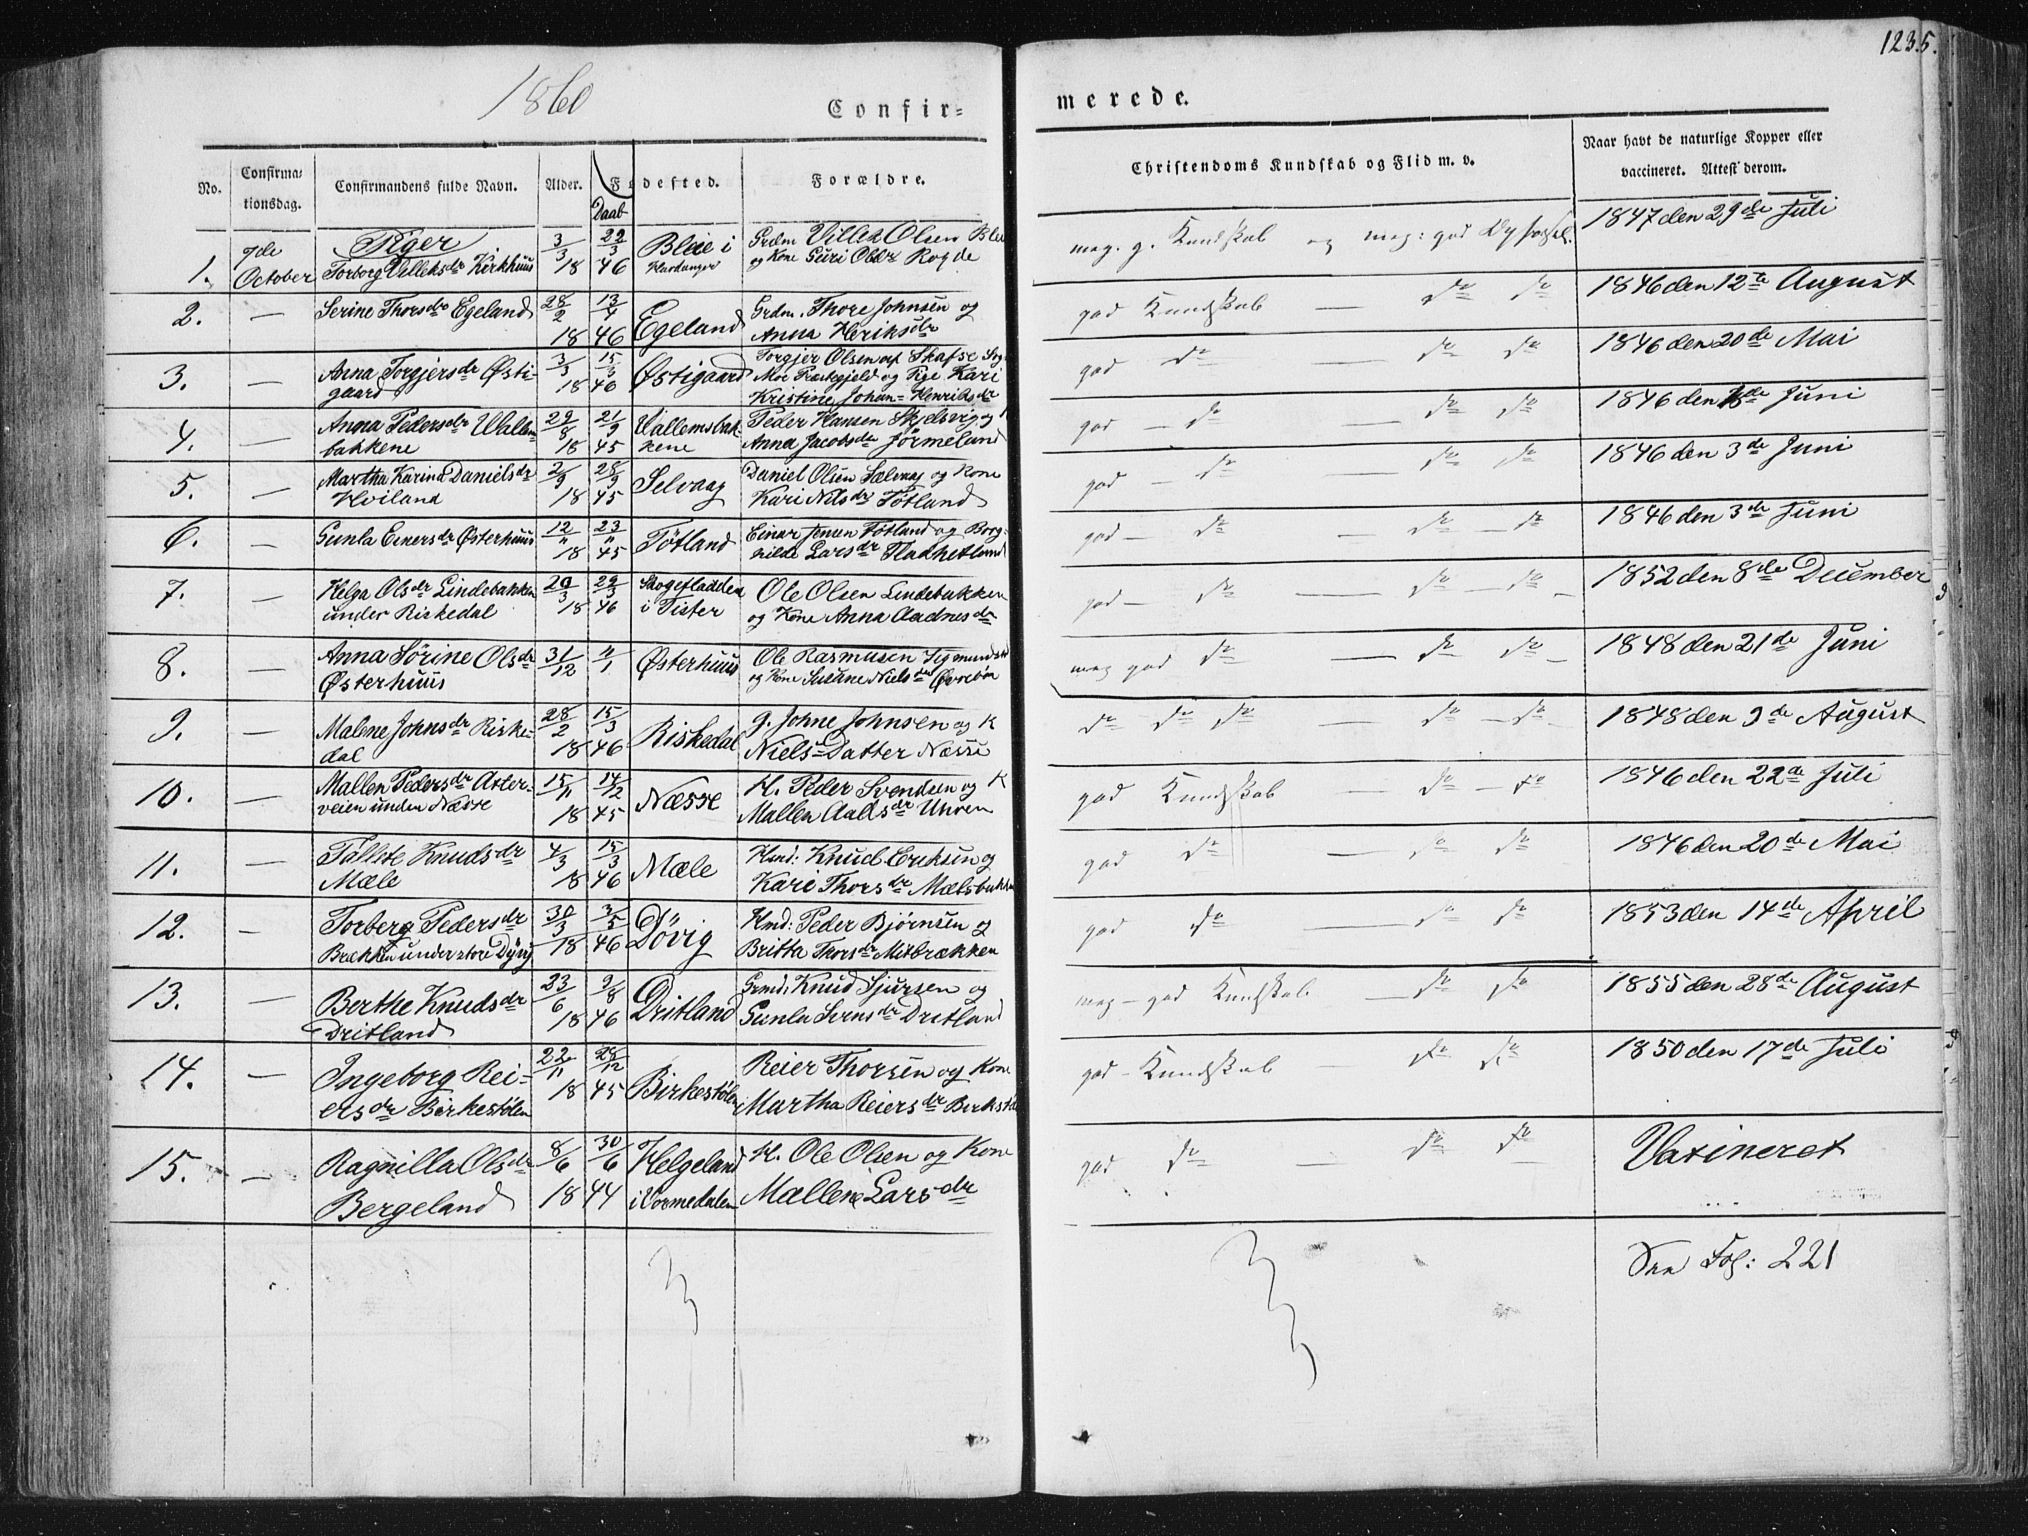 1235.
1860
Confir=
merede.
No.
Confirma-
tionsdag.
Confirmandens fulde Navn.
Alder.
Fødested.
Daab
Forældre.
Christendoms Kundskab og Flid m. v.
Naar havt de naturlige Kopper eller
vaccineret. Attest derom.
Piger
1. 7de October Torborg Villeksdr Kirkhuus 3/3 22/3 18 46 Bleie i Hardanger Grdm Villek Olsen Blei og Kone Guri Olsdr Rogde meg. g. Kundskab og meg: god Opførsel. 1847 den 29de Juli
2. — Serine Thorsdr Egeland 28/2 13/4 18 46 Egeland Grdm. Thore Johnsen og Anna Heriksdr god Kundskab — do do 1846 den 12te August
3. — Anna Torgjersdr Østi-
gaard 3/3 15/3 18 46 Østigaard Torgjer Olsen af Skafse Sog
Moe Præstegjeld og Pige Kari
Kristine Johan= Henriksdr god do — do do 1846 den 20de Mai
4. — Anna Pedersdr Wallem-
bakkene 29/8 21/9 18 45 Wallemsbak-
kene Peder Hansen Skjelsvig og
Anna Jacobsdr Jørmeland god — do — do do 1846 den de Juni
5. — Martha Karina Danielsdr
Hviland 2/9 28/9 18 45 Selvaag Daniel Olsen Sælvag og Kone
Kari Nilsdr Tøtland god — do — do do 1846 den 3de Juni
6. — Gunla Einersdr Østerhuus 12/11 23/11 18 45 Tøtland Einar Jensen Tøtland og Borg-
hilde Larsdr Fladhetland god — do — do — do 1846 den 3de Juni
7. — Helga Olsdr Lindebakken
under Riskedal 20/3 29/3 18 46 Skogefladden
i Fister Ole Olsen Lindebakken
og Kone Anna Aadnesdr god — do — do — do — 1852 den 8de December
8. — Anna Sørine Olsdr
Østerhuus 31/12 11/1 Østerhuus Ole Rasmusen Sigmundstd
og Kone Susanne Nielsdr Øvrebøn meg god do — do do — 1848 den 21de Juni
9. — Malene Johnsdr Riske-
dal 28/2 15/3 18 46 Riskedal g. Johne Johnsen og K
Niels=Datter Næsse do do do — do — do 1848 den 9de August
10. — Mallen Pedersdr Aster-
veien under Næsse 15/11 14/12 18 45 Næsse H. Peder Svendsen og K
Mallen Aadsdr Uhren god Kundskab — do — do 1846 den 22de Juli
11. — Tallete Knudsdr
Mæle 4/3 15/3 18 46 Mæle Hmd: Knud Eriksen og
Kari Thorsdr Mælsbakken god do — do do 1846 den 20de Mai
12. — Torberg Pedersdr
Brækken under store Døvig 30/3 3/5 18 46 Døvig Hmd: Peder Bjørnsen og
Britta Thorsdr Mitbrækken god do — do do 1853 den 14de April
13. — Berthe Knudsdr
Dritland 23/6 9/8 18 46 Dritland Grmd: Knud Sjursen og
Gunla Svensdr Dritland meg — god Kundskab — do do 1855 den 28de August
14. — Ingeborg Rei-
ersdr Birkestølen 22/11 28/12 18 45 Birkestølen Reier Thorsen og Kone
Martha Reiersdr Birkstøl god — Kundskab — do do 1850 den 17de Juli
15. — Ragnilla Olsdr
Bergeland 8/6 30/6 18 44 Helgeland
i Vormedalen H. Ole Olsen og Kone
Mallene Larsdr god do — do do Vaxineret
See Fol: 221